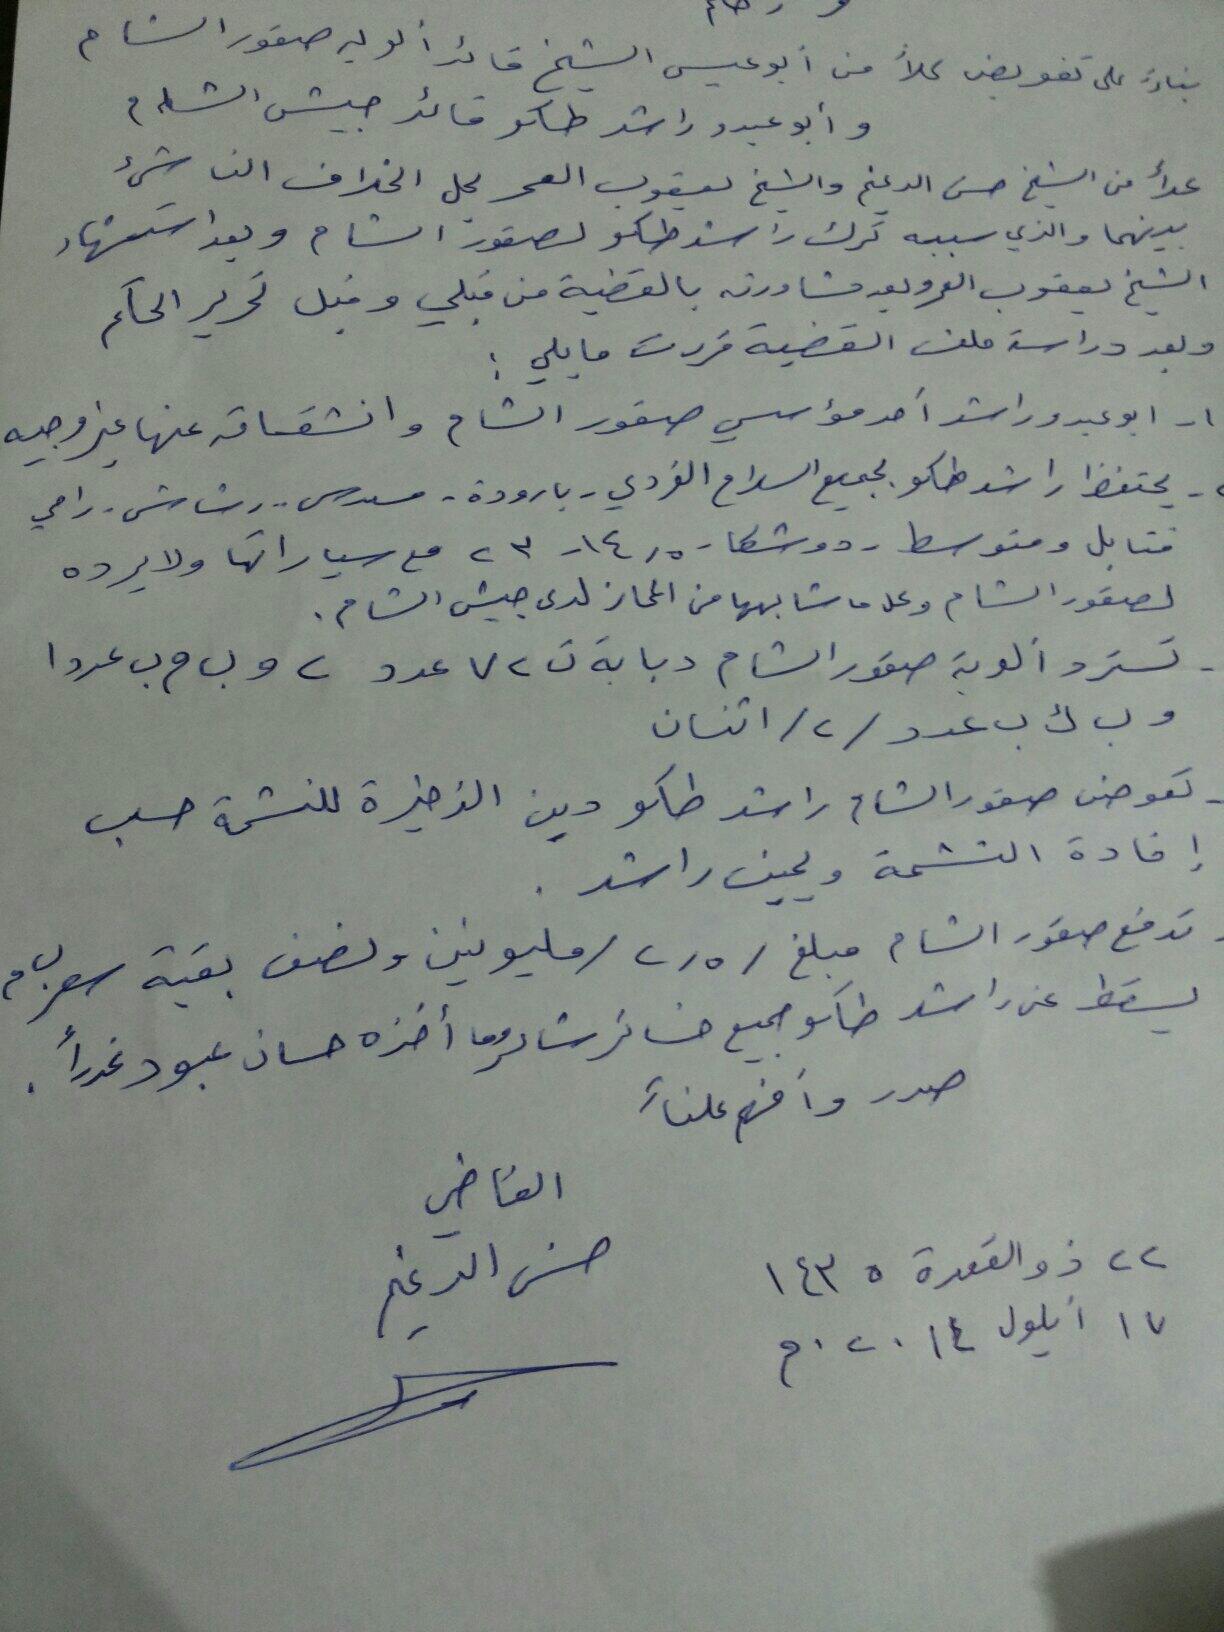 بناءً على تفويض كلاً من أبو عيسى الشيخ قائد ألوية صقور الشام
و أبو عبدو راشد طكو قائد جيش الشام
كلاً من الشيخ حسن الدغيم والشيخ يعقوب العمر بحل الخلاف الناشئ
بينهما والذي سببه ترك راشد طكو لصقور الشام وبعد استشهاد
الشيخ يعقوب العمر وبعد مشاورته بالقضية من قبلي وقبل تحرير الحكم
وبعد دراسة ملف القضية قررت مايلي :
١- ابو عبدو راشد أحد مؤسسي صقور الشام وانشقاقه عنها غير وجيه
٢- يحتفظ راشد طكو بجميع السلاح الفردي - بارودة - مسدس - رشاش - رامي
قنابل ومتوسط - دوشكا - ١٤,٥ - ٢٣ مع سياراتها ولا يرده
لصقور الشام وكل ما شابهها من المحاز لدى جيش الشام .
- تسترد ألوية صقور الشام دبابة ت ٧٢ عدد ٢ و ب م ب عدد ١
و ب ك ب عدد /٢/ اثنان
- تعوض صقور الشام راشد طكو دين الذخيرة للنشمة حسب
إفادة النشمة ويمين راشد .
- تدفع صقور الشام مبلغ /٢,٥/ مليونين ونصف بقية سعر ب م
يسقط عن راشد طكو جميع خسائر وما أخذه حسان عبود غدراً .
صدر وأفهم علناً
القاضي
حسن الدغيم
٢٢ ذو القعدة ١٤٣٥
١٧ أيلول ٢٠١٤ م